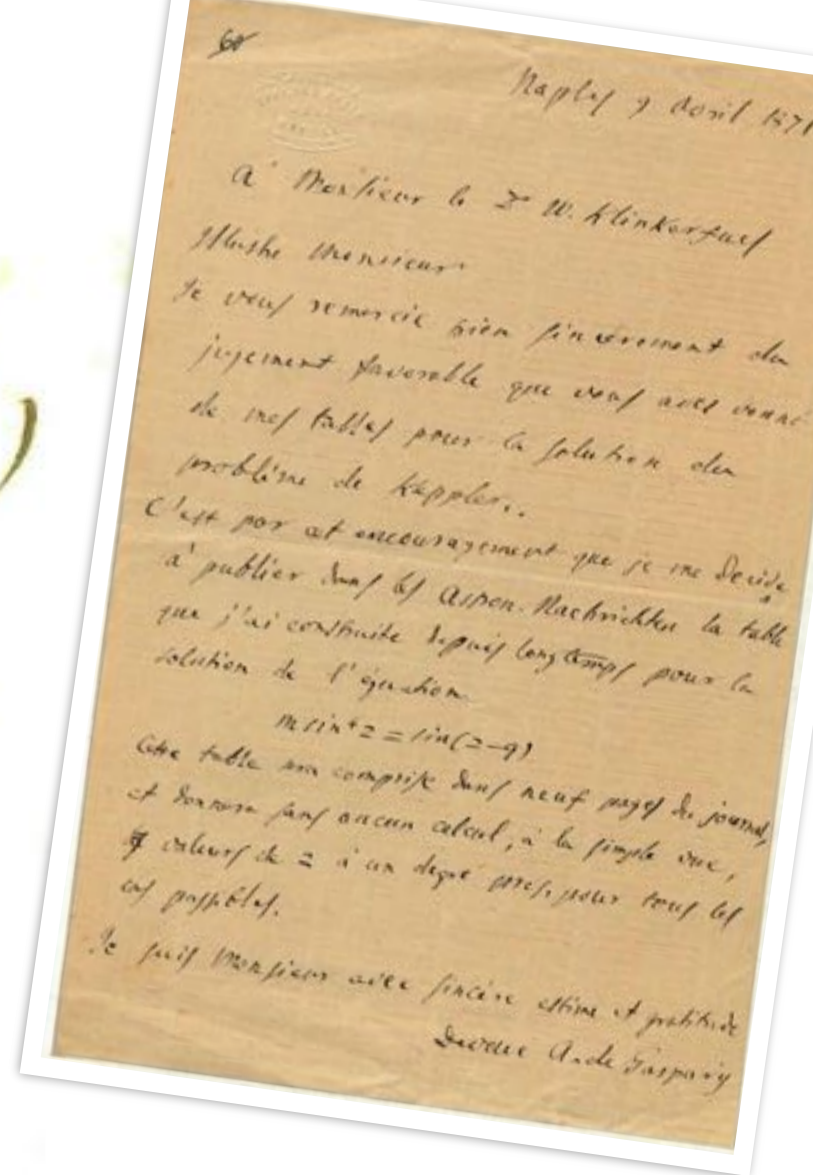 60
Naples 9 Avril 1871
A Monsieur le Dr W. Klinkerfues
Illustre Monsieur
Je vous remercie bien sincerement du
jugement favorable que vous avez donné
de mes tables pour la solution du
problème de Keppler..
C'est par cet encouragement que je me decide
à publier dans les Astron. Nachrichten la table
que j'ai construite depuis longtemps pour la
solution de l'équation
m sin⁴z = sin(z-q)
Cette table sera comprise dans neuf pages du journal,
et donnera sans aucun calcul, à la simple vue,
valeurs de z à un degré pres, pour tous les
cas possibles.
Je suis Monsieur avec sincère estime et gratitude
Devoué A. de Gasparis